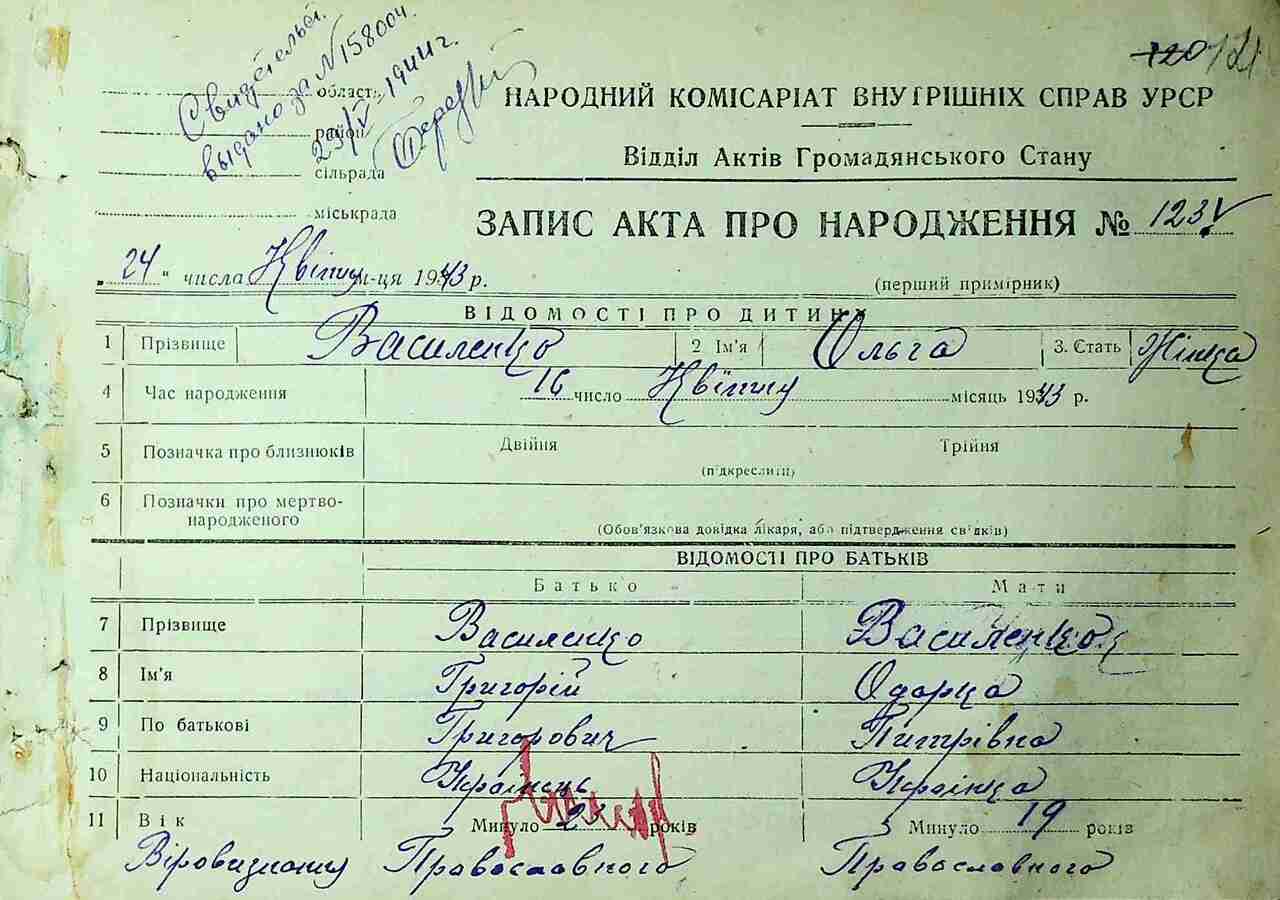 120 121
Свидетельст.
выдано за N 158004.
23/V 1944 г.
область
район
сільрада
міськрада
НАРОДНИЙ КОМІСАРІАТ ВНУТРІШНІХ СПРАВ УРСР
Відділ Актів Громадянського Стану
ЗАПИС АКТА ПРО НАРОДЖЕННЯ № 123
„24“ числа Квітну м-ця 1943 р.
(перший примірник)
ВІДОМОСТІ ПРО ДИТИНУ
1 Прізвище Василенко 2 Ім'я Ольга 3. Стать Жінка
4 Час народження 16 число Квітну місяць 1943 р.
5 Позначка про близнюків Двійня Трійня
(підкреслити)
6 Позначки про мертво-
народженого
(Обов'язкова довідка лікаря, або підтвердження свідків)
ВІДОМОСТІ ПРО БАТЬКІВ
Батько Мати
7 Прізвище Василенко Василенко
8 Ім'я Григорій Одарка
9 По батькові Григорович Питрівна
10 Національність Українець Українка
11 Вік Минуло років Минуло 19 років
Віровизнону Православного Православного